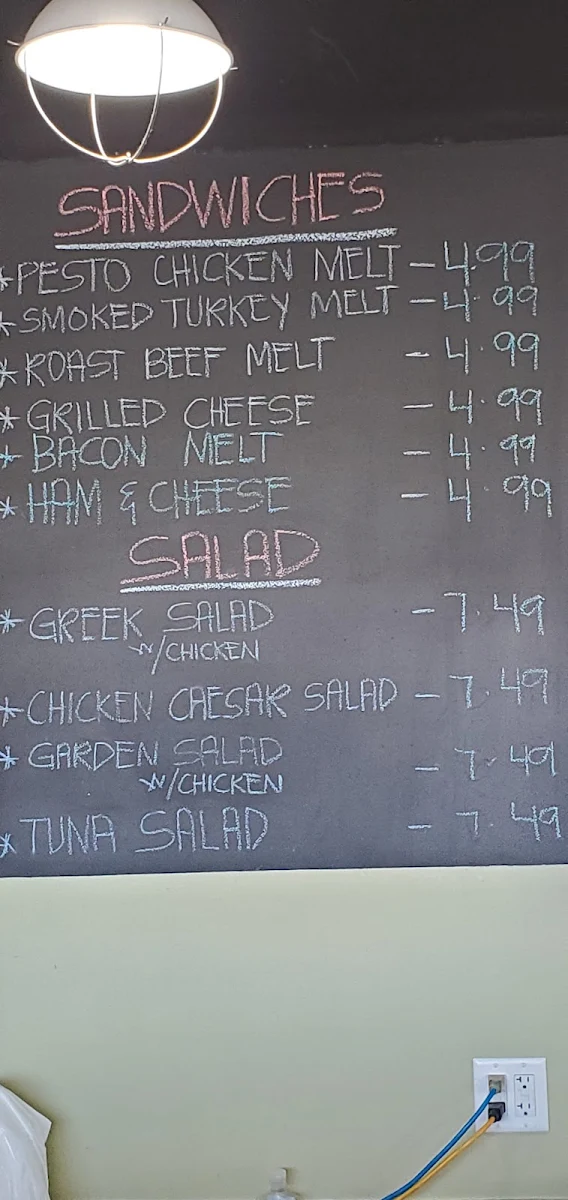 SANDWICHES
*PESTO CHICKEN MELT - 4.99
*SMOKED TURKEY MELT - 4.99
*ROAST BEEF MELT - 4.99
* GRILLED CHEESE - 4.99
* BACON MELT - 4.99
* HAM & CHEESE - 4.99
SALAD
* GREEK SALAD - 7.49
w/CHICKEN
*CHICKEN CAESAR SALAD - 7.49
* GARDEN SALAD - 7.49
w/CHICKEN
*TUNA SALAD - 7.49